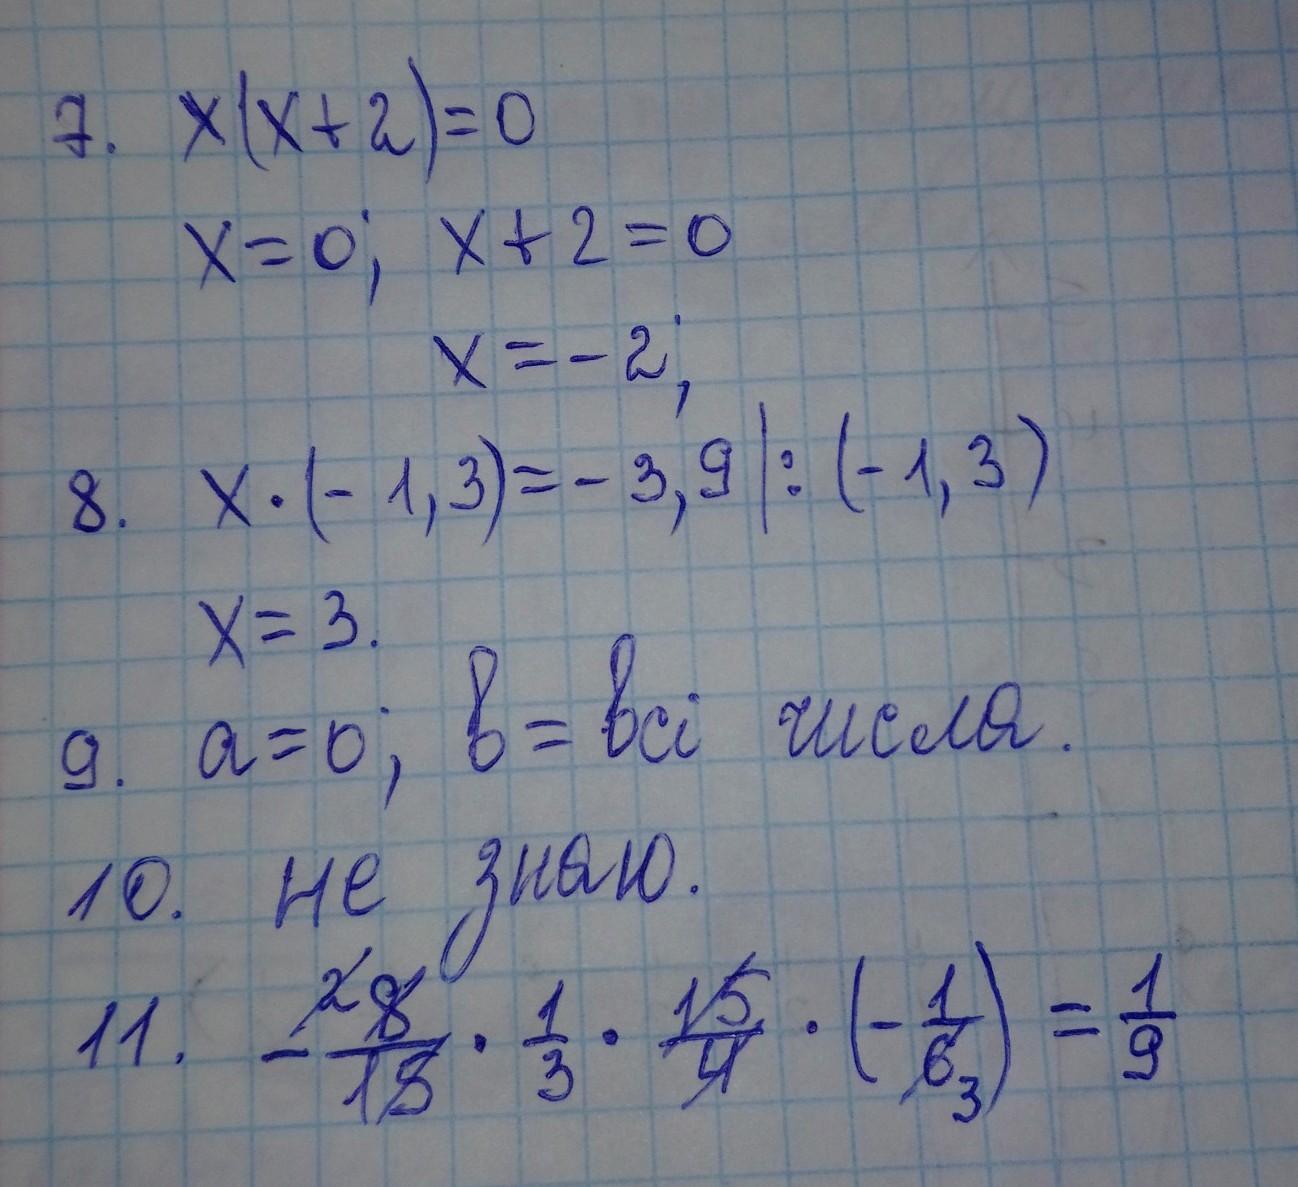 7. x(x+2)=0
x=0; x+2=0
x=-2;
8. x·(-1,3)=-3,9|:(-1,3)
x=3.
9. a=0; b=всі числа.
10. не знаю.
11. -8/15 · 1/3 · 15/4 · (-1/6) = 1/9
2
3